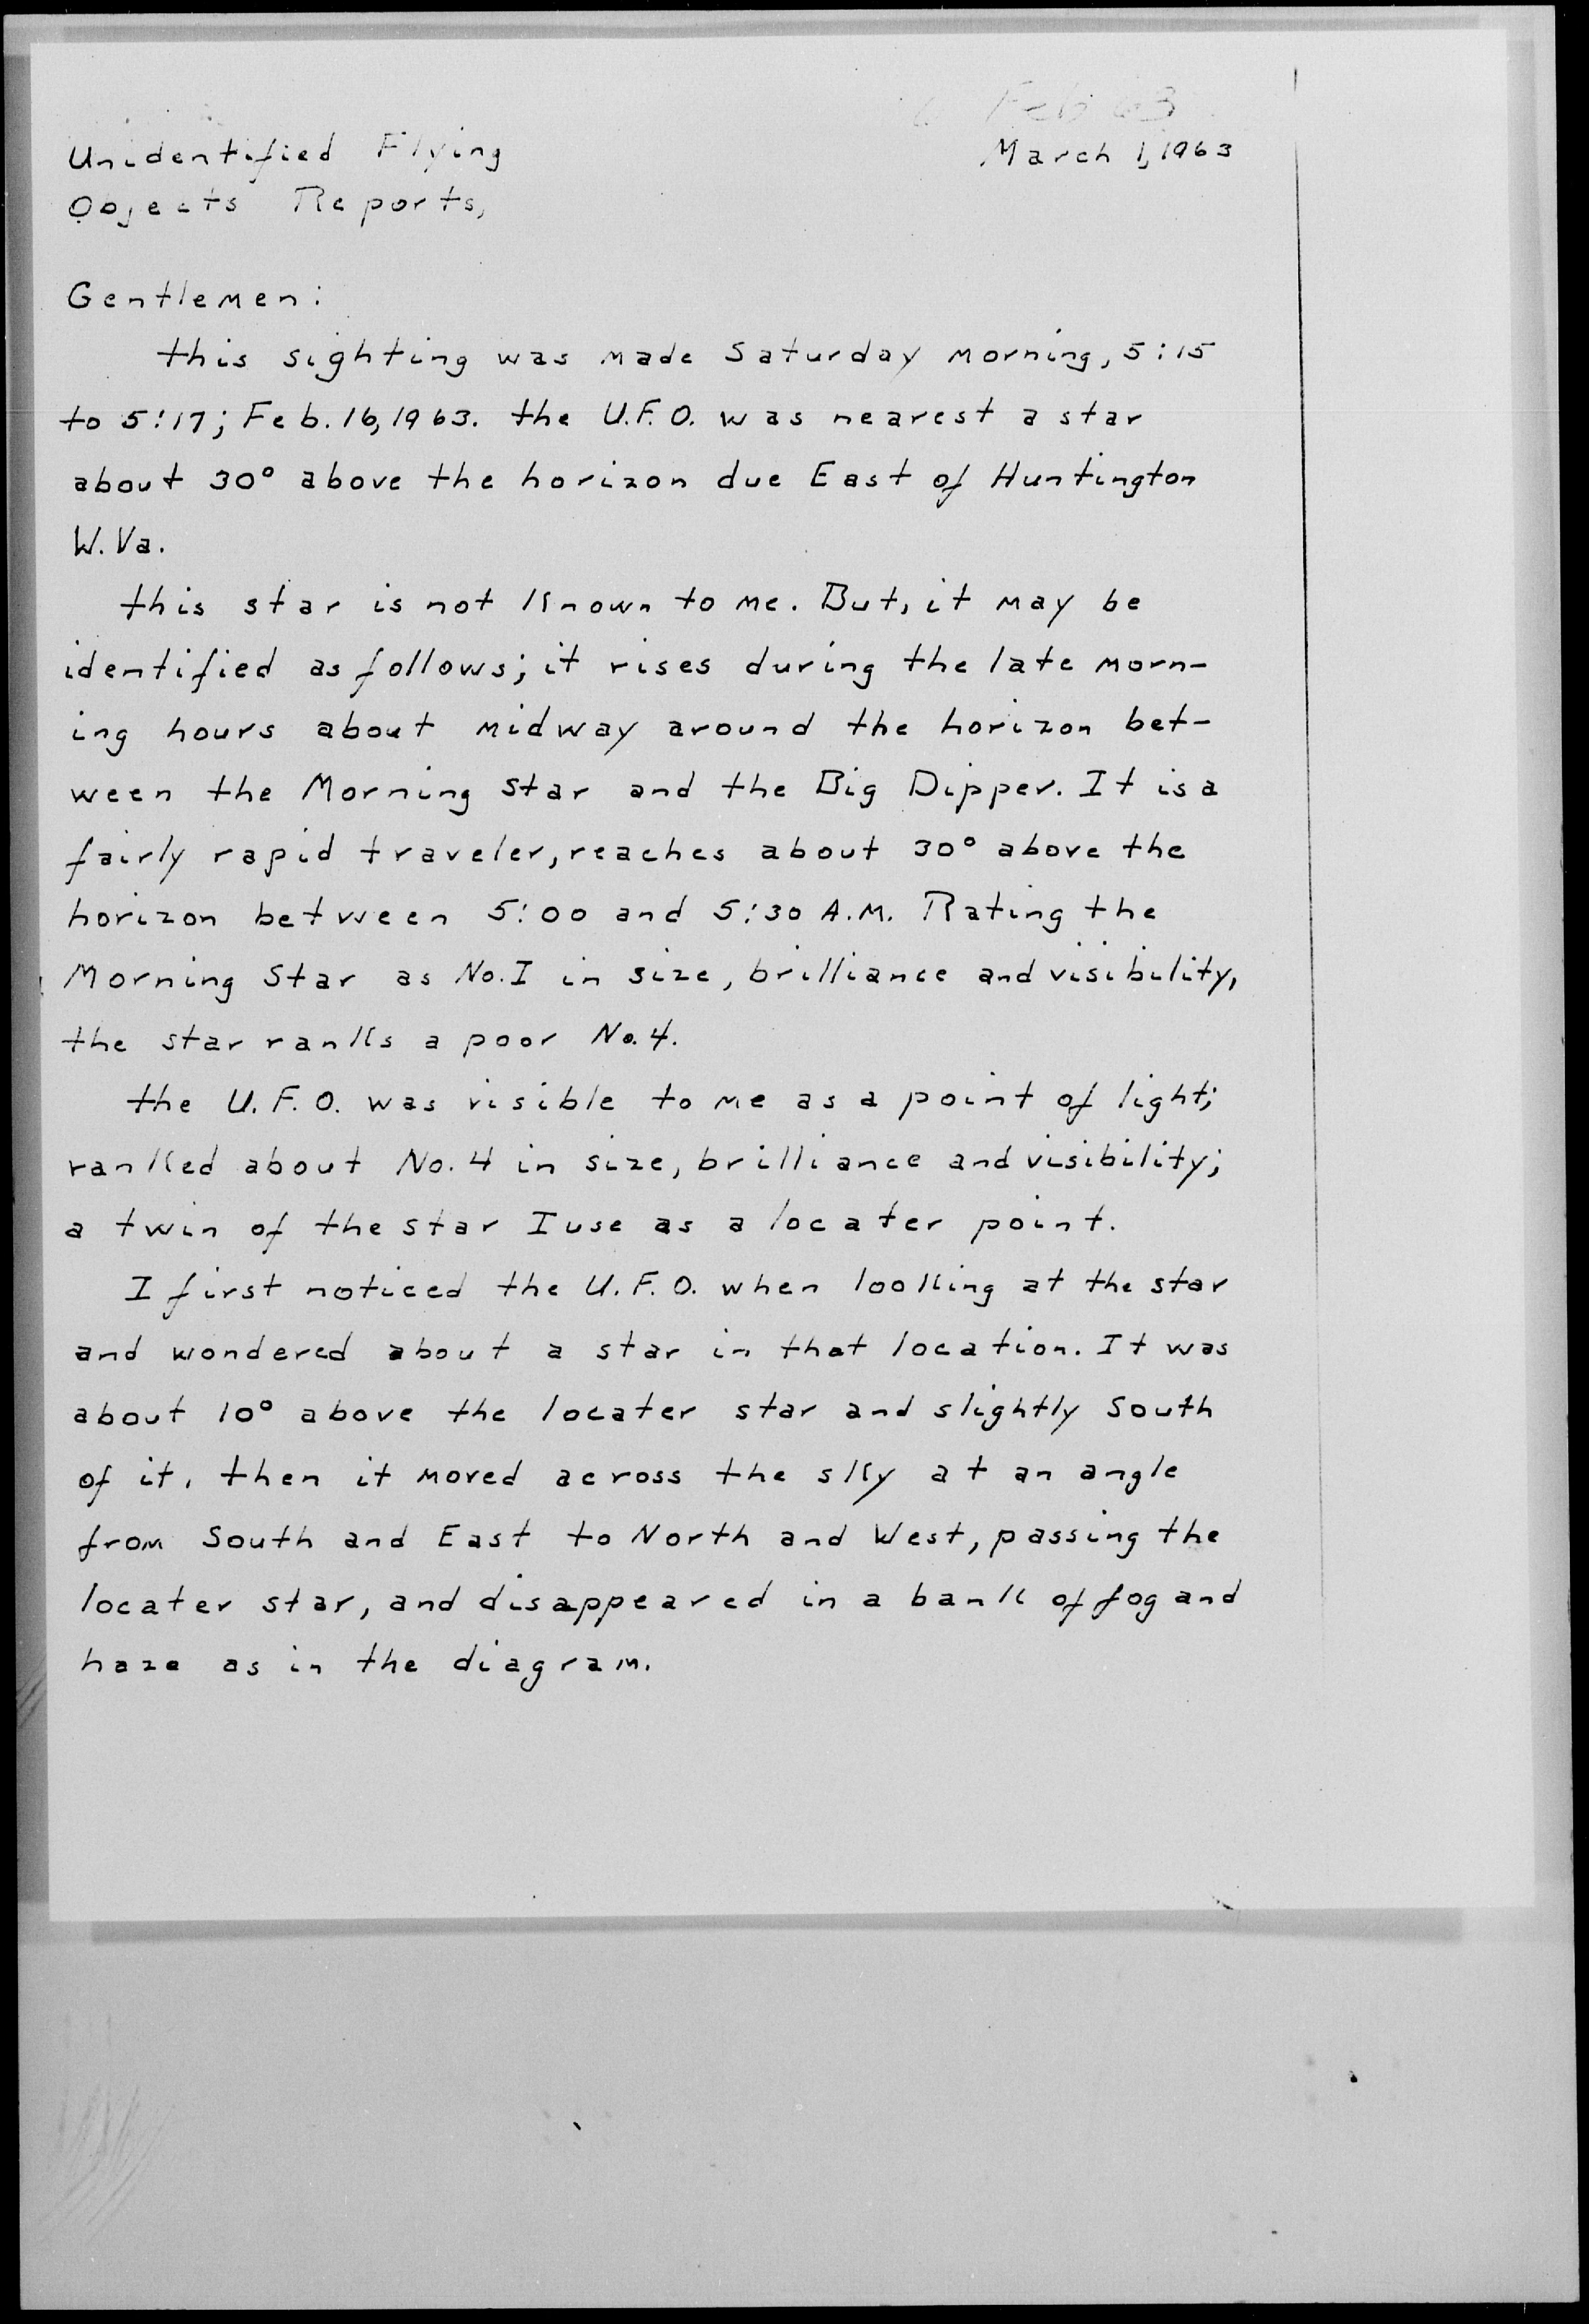 Feb 63
Unidentified Flying
March 1, 1963
Objects Reports,
Gentlemen:
this sighting was made Saturday morning, 5:15
to 5:17; Feb. 16, 1963. the U.F.O. was nearest a star
about 30° above the horizon due East of Huntington
W. Va.
this star is not known to me. But, it may be
identified as follows; it rises during the late morn-
ing hours about midway around the horizon bet-
ween the Morning Star and the Big Dipper. It is a
fairly rapid traveler, reaches about 30° above the
horizon between 5:00 and 5:30 A.M. Rating the
Morning Star as No. I in size, brilliance and visibility,
the star ranks a poor No. 4.
the U.F.O. was visible to me as a point of light;
ranked about No. 4 in size, brilliance and visibility;
a twin of the star I use as a locater point.
I first noticed the U.F.O. when looking at the star
and wondered about a star in that location. It was
about 10° above the locater star and slightly South
of it. then it moved across the sky at an angle
from South and East to North and West, passing the
locater star, and disappeared in a bank of fog and
haze as in the diagram.